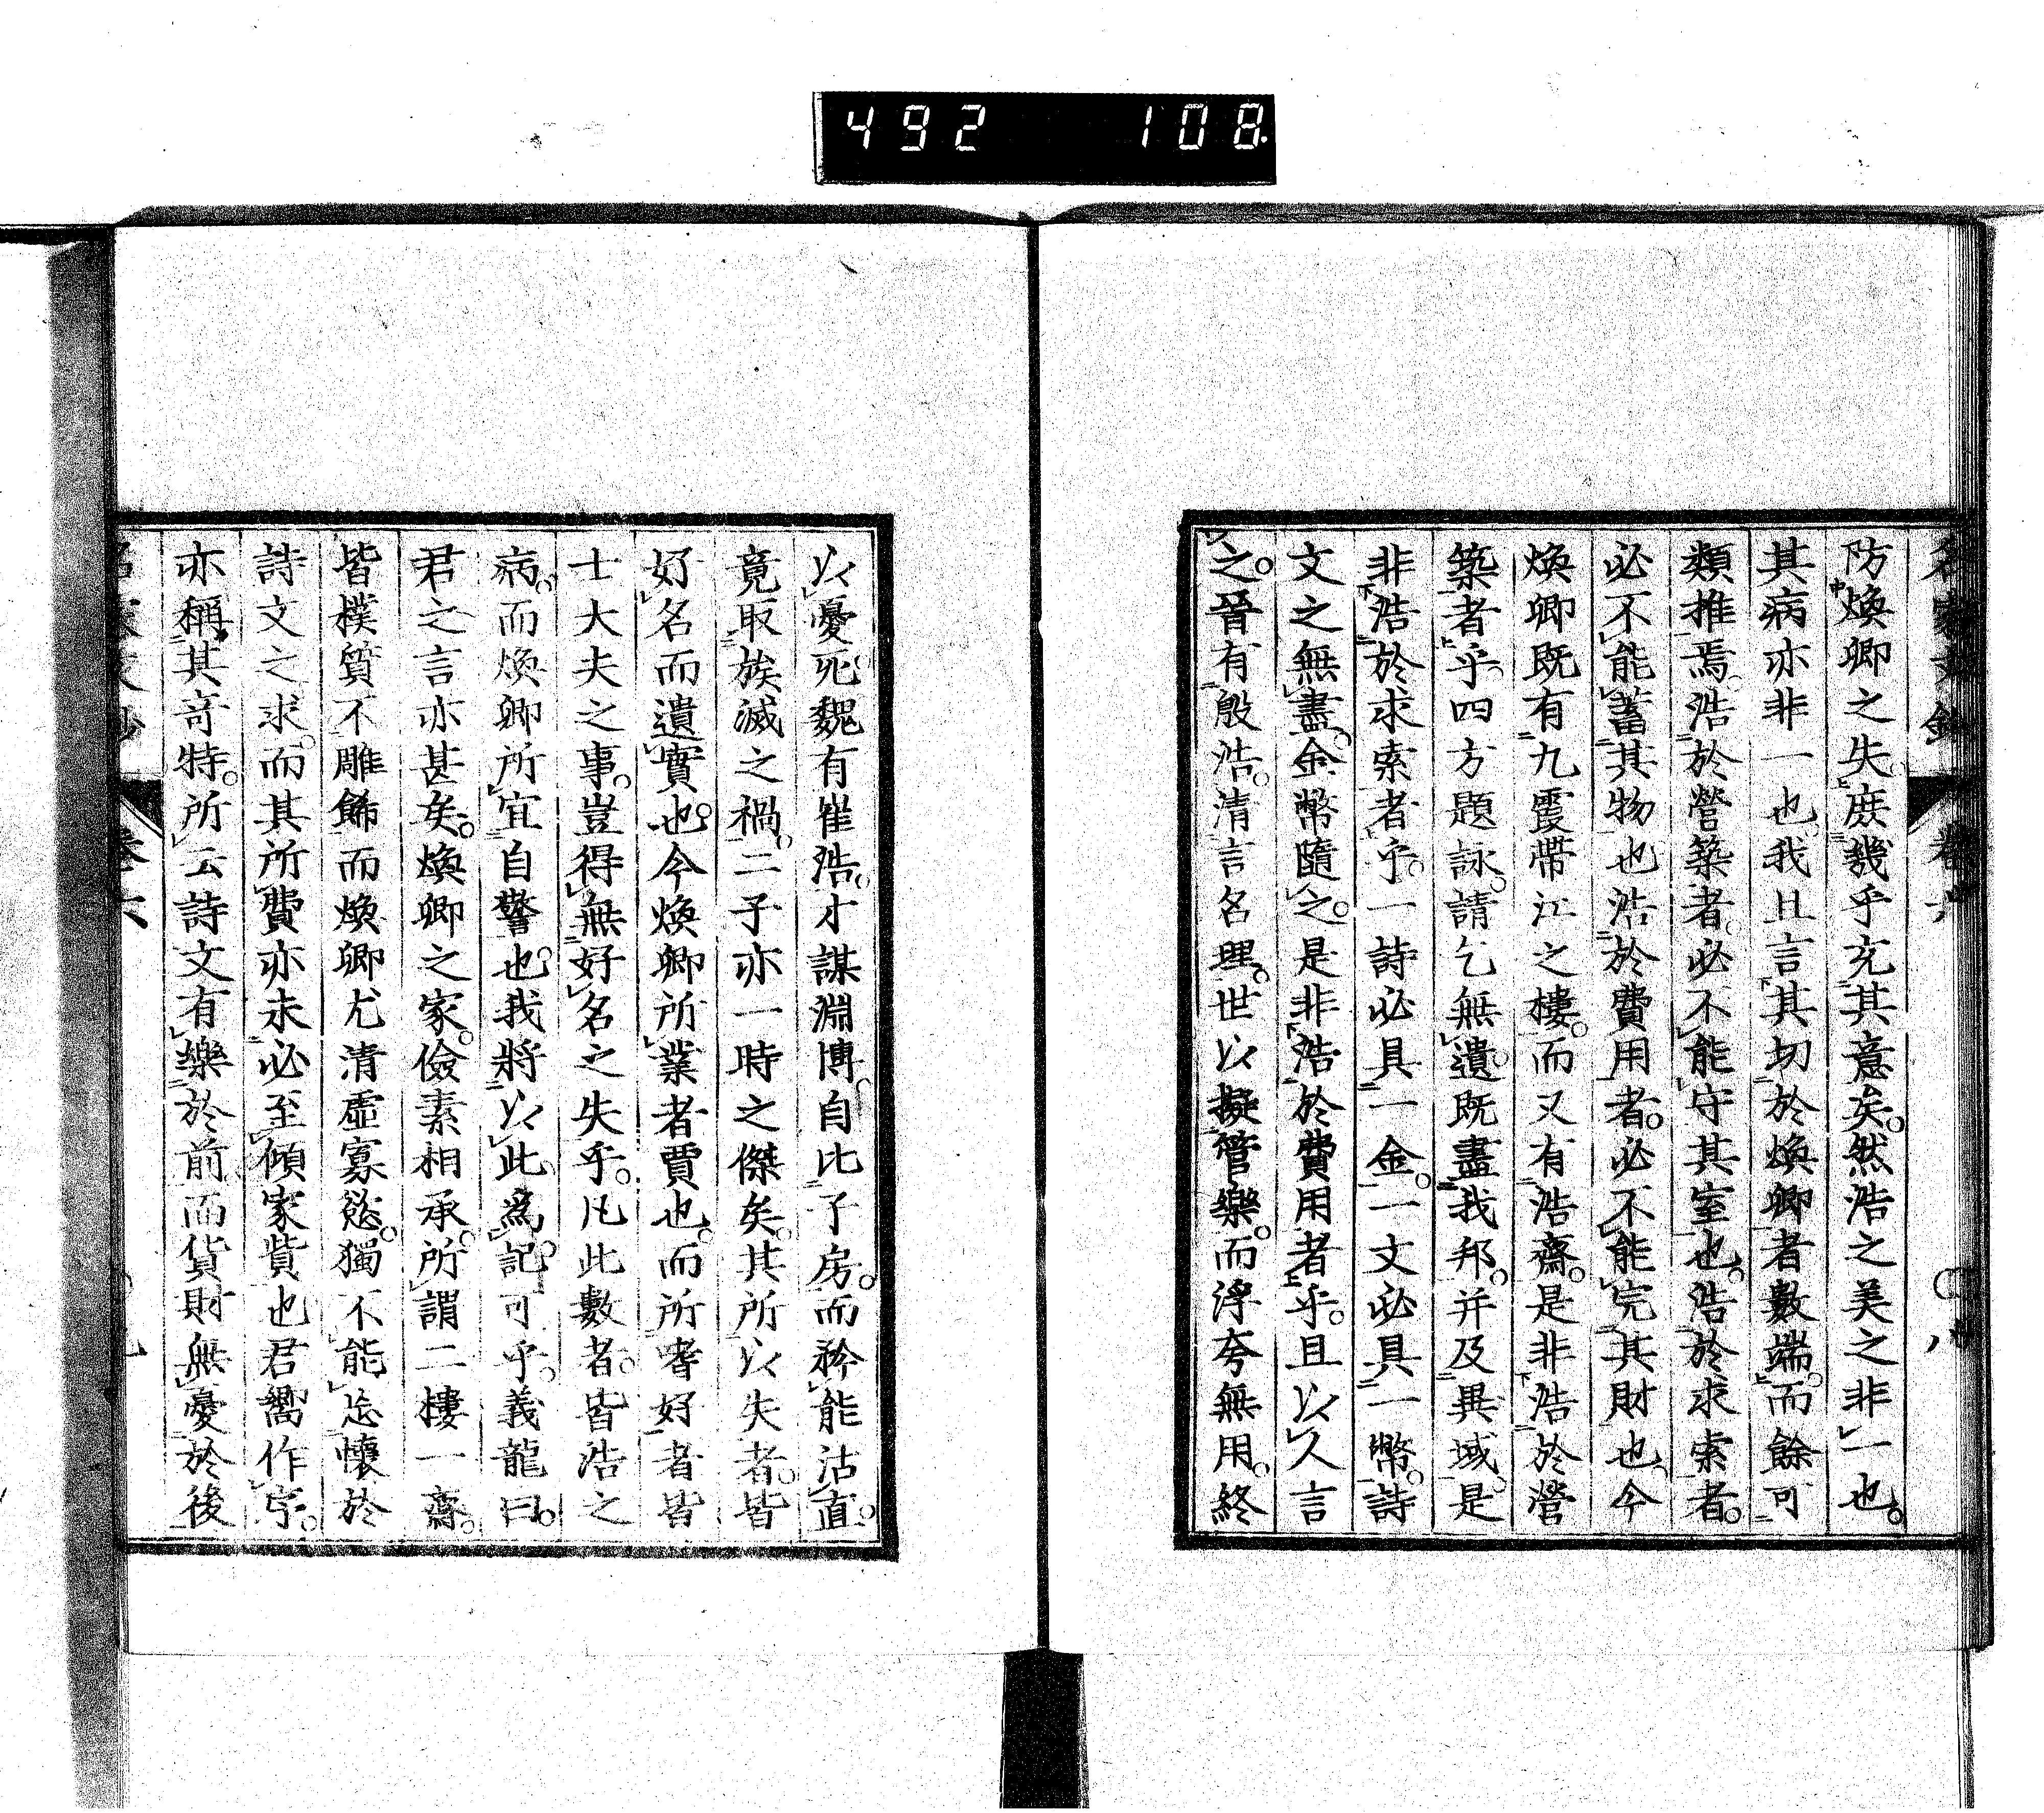 492 108
名家文鈔 卷六 八
防煥卿之失。庶幾乎充其意矣。然浩之美之非一也。
其病亦非一也。我且言其切於煥卿者數端。而餘可
類推焉。浩於營築者。必不能守其室也。浩於求索者。
必不能蓄其物也浩於費用者。必不能完其財也。今
煥卿既有九霞帶江之樓。而又有浩齋。是非浩於營
築者乎。四方題詠。請乞無遺既盡我邦。并及異域。是
非浩於求索者乎。一詩必具一金。一文必具一幣。詩
文之無盡。金幣隨之。是非浩於費用者乎。且以人言
之。晉有殷浩。清言名理。世以擬管樂。而浮夸無用。終
以憂死。魏有崔浩。才謀淵博。自比子房。而矜能沽直。
竟取族滅之禍。二子亦一時之傑矣。其所以失者。皆
好名而遺實也。今煥卿所業者賈也。而所嗜好者皆
士大夫之事。豈得無好名之失乎。凡此數者。皆浩之
病。而煥卿所宜自警也。我將以此爲記。可乎。義龍曰。
君之言亦甚矣。煥卿之家。儉素相承。所謂二樓一齋。
皆樸質不雕餝而煥卿尤清虛寡慾。獨不能忘懷於
詩文之求。而其所費亦未必至傾家貲也君嚮作序。
亦稱其奇特。所云詩文有樂於前。而貨財無憂於後
名家文鈔 卷六